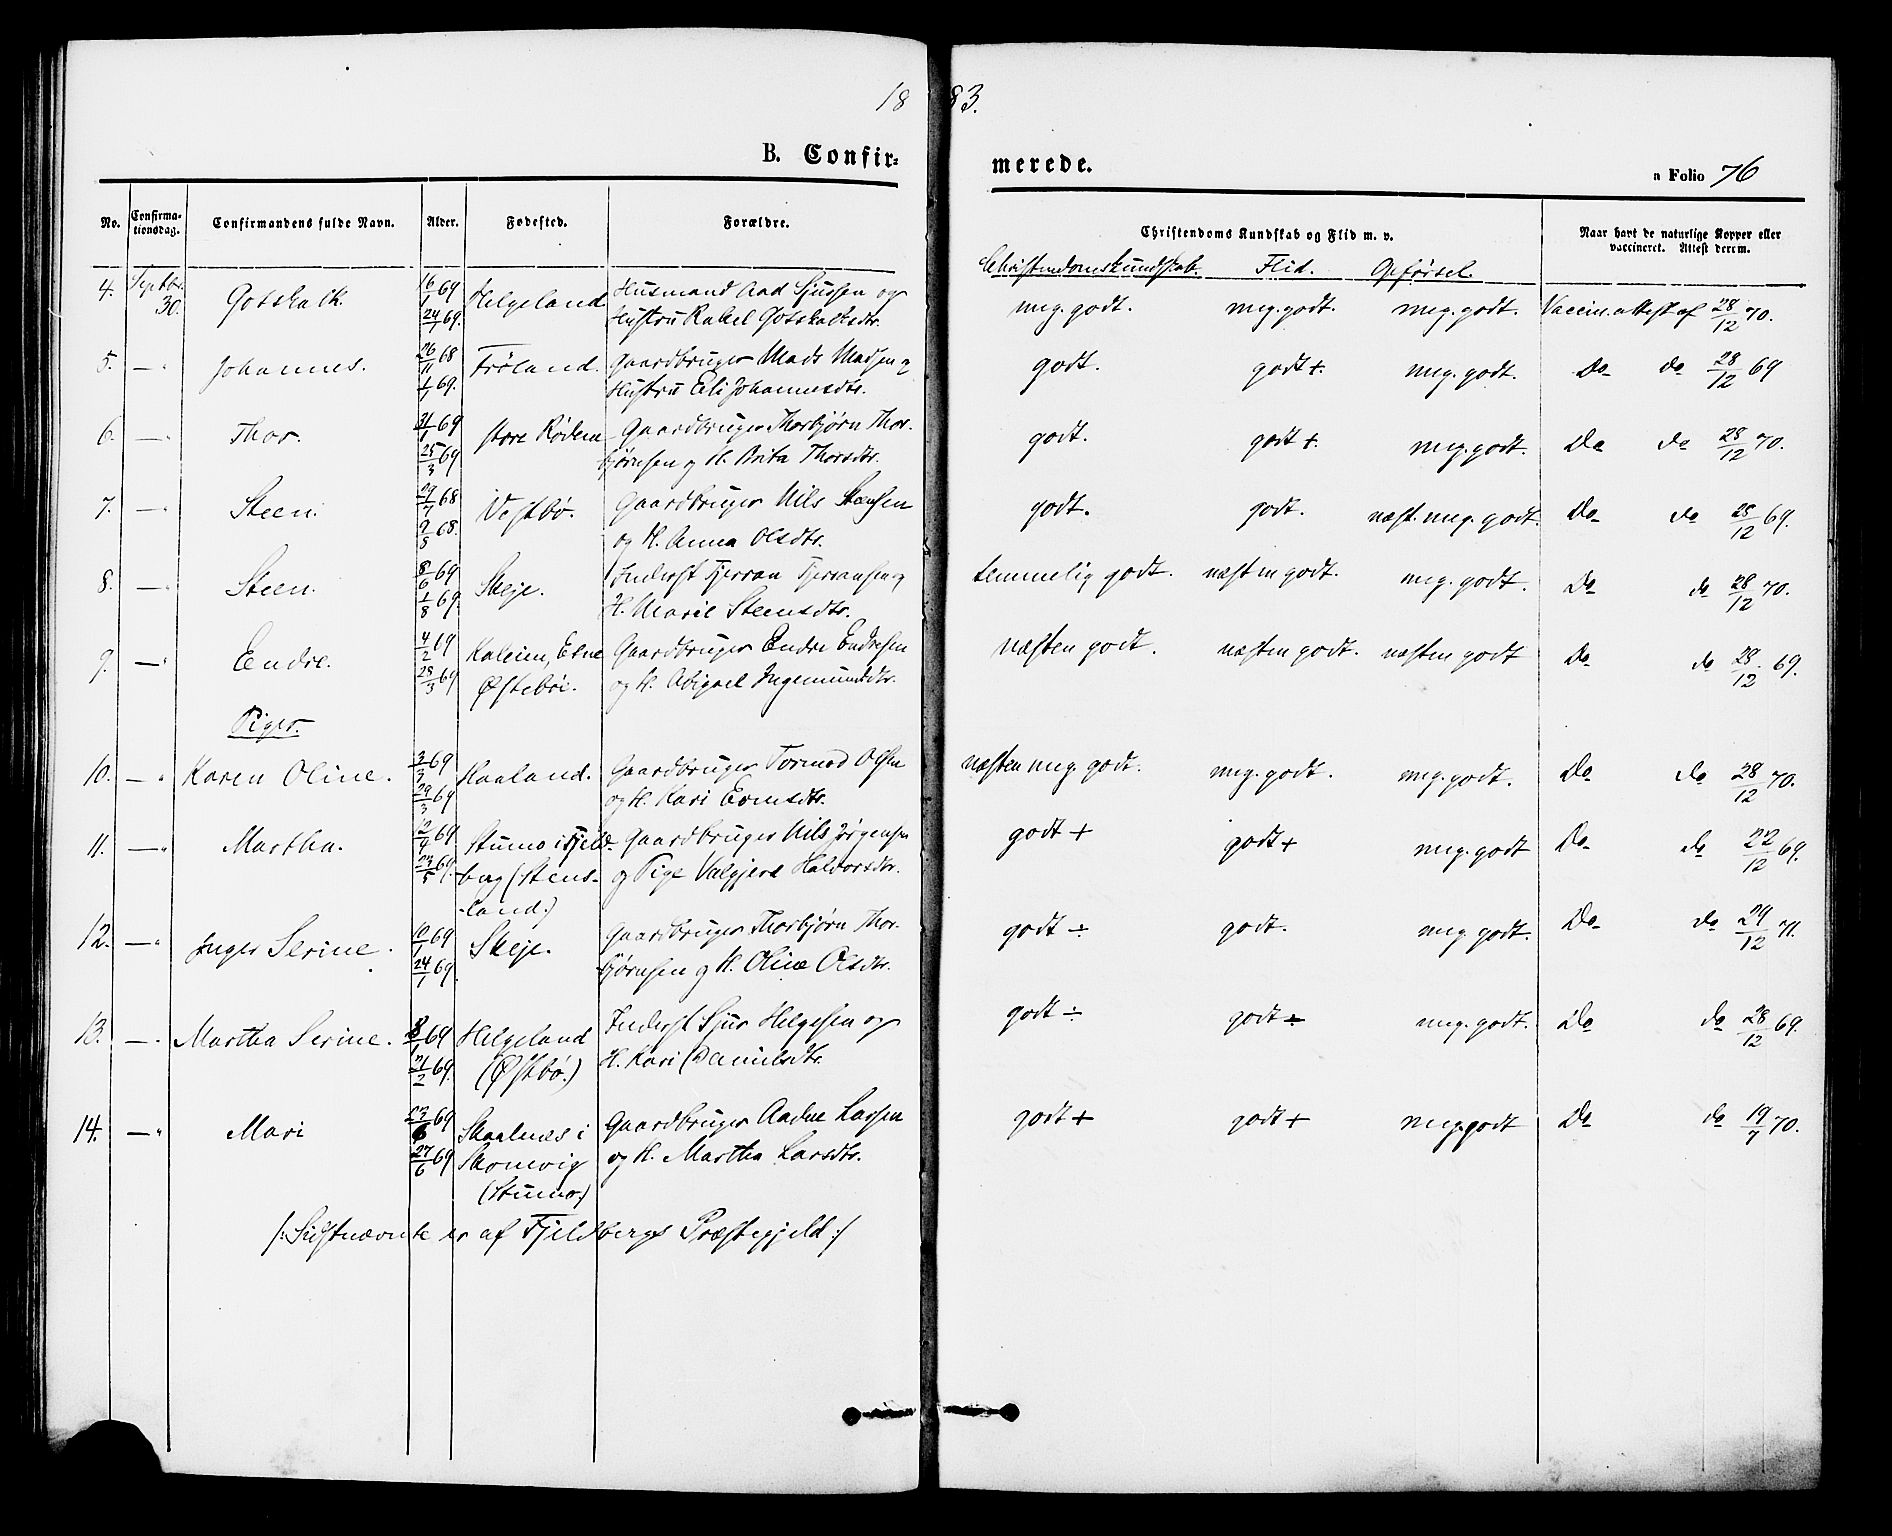 1883.
B. Confirmerede.
n Folio 76
No. Confirmationsdag. Confirmandens fulde Navn. Alder. Fødested. Forældre. Christendoms Kundskab og Flid m. v. Naar havt de naturlige Kopper eller vaccineret. Attest derom.
Christendomskundskab. Flid. Opførsel.
4. Septbr. 30. Gotskalk. 16/1 69 Helgeland Husmand Aad Sjursen og meg. godt. meg. godt. meg. godt. Vaccin. attest af 28/12 70.
24/1 69. Hustru Rakel Gotskalksdtr.
5. —" Johannes. 26/11 68 Frøland. Gaardbruger Mads Madsen og godt. godt +. meg. godt. Do do 28/12 69
1/1 69. Hustru Eli Johannesdtr.
6. —" Thor. 31/1 69 store Rødne Gaardbruger Thorbjørn Thor- godt. godt +. meg. godt. Do do 28/12 70.
25/3 69 bjørnsen og H. Brita Thorsdtr.
7. —" Steen. 29/7 68 Vestbø. Gaardbruger Nils Steensen godt. godt. næst. meg. godt. Do do 28/12 69.
9/8 68. og H. Anna Olsdtr.
8. —" Steen. 8/6 69 Skeje. Inderst Tjerran Tjerransen og temmelig godt. næsten godt. meg. godt. Do do 28/12 70.
1/8 69. H. Marie Steensdtr.
9. —" Endre. 4/2 69 Etne Gaardbruger Endre Endresen næsten godt. næsten godt. næsten godt Do do 28/12 69.
28/3 69 Østebøe. og H. Abigael Ingemundsdtr.
Piger.
10. —" Karen Oline. 3/3 69 Haaland. Gaardbruger Tormod Olsen næsten meg. godt. meg. godt. meg. godt. Do do 28/12 70.
29/3 69 og H. Kari
11. —" Martha. 2/4 69 Stumo i Fjeld- Gaardbruger Nils Jørgensen godt + godt + meg. godt Do do 22/12 69.
23/5 69. berg (Stens- og Pige Valgjerd Halvorsdtr.
-land.)
12. —" Inger Serine. 10/1 69 Skeje. Gaardbruger Thorbjørn Thor- godt ÷ godt. meg godt. Do do 29/12 71.
24/1 69. bjørnsen og H. Oline Olsdtr.
13. —" Martha Serine. 8/1 69 Helgeland Inderst Sjur Helgesen og godt ÷ godt ÷ meg. godt. Do do 28/12 69.
21/2 69. (Østbø.) H. Kari Danielsdtr.
14. —" Mari 23/6 69 Skaalnæs i Gaardbruger Aadne Larsen godt + godt + meg. godt Do do 19/7 70.
27/6 69 Skonevig og H. Martha Larsdtr.
(Stumo.)
/: Sidstnævnte er af Fjeldbergs Præstegjeld :/